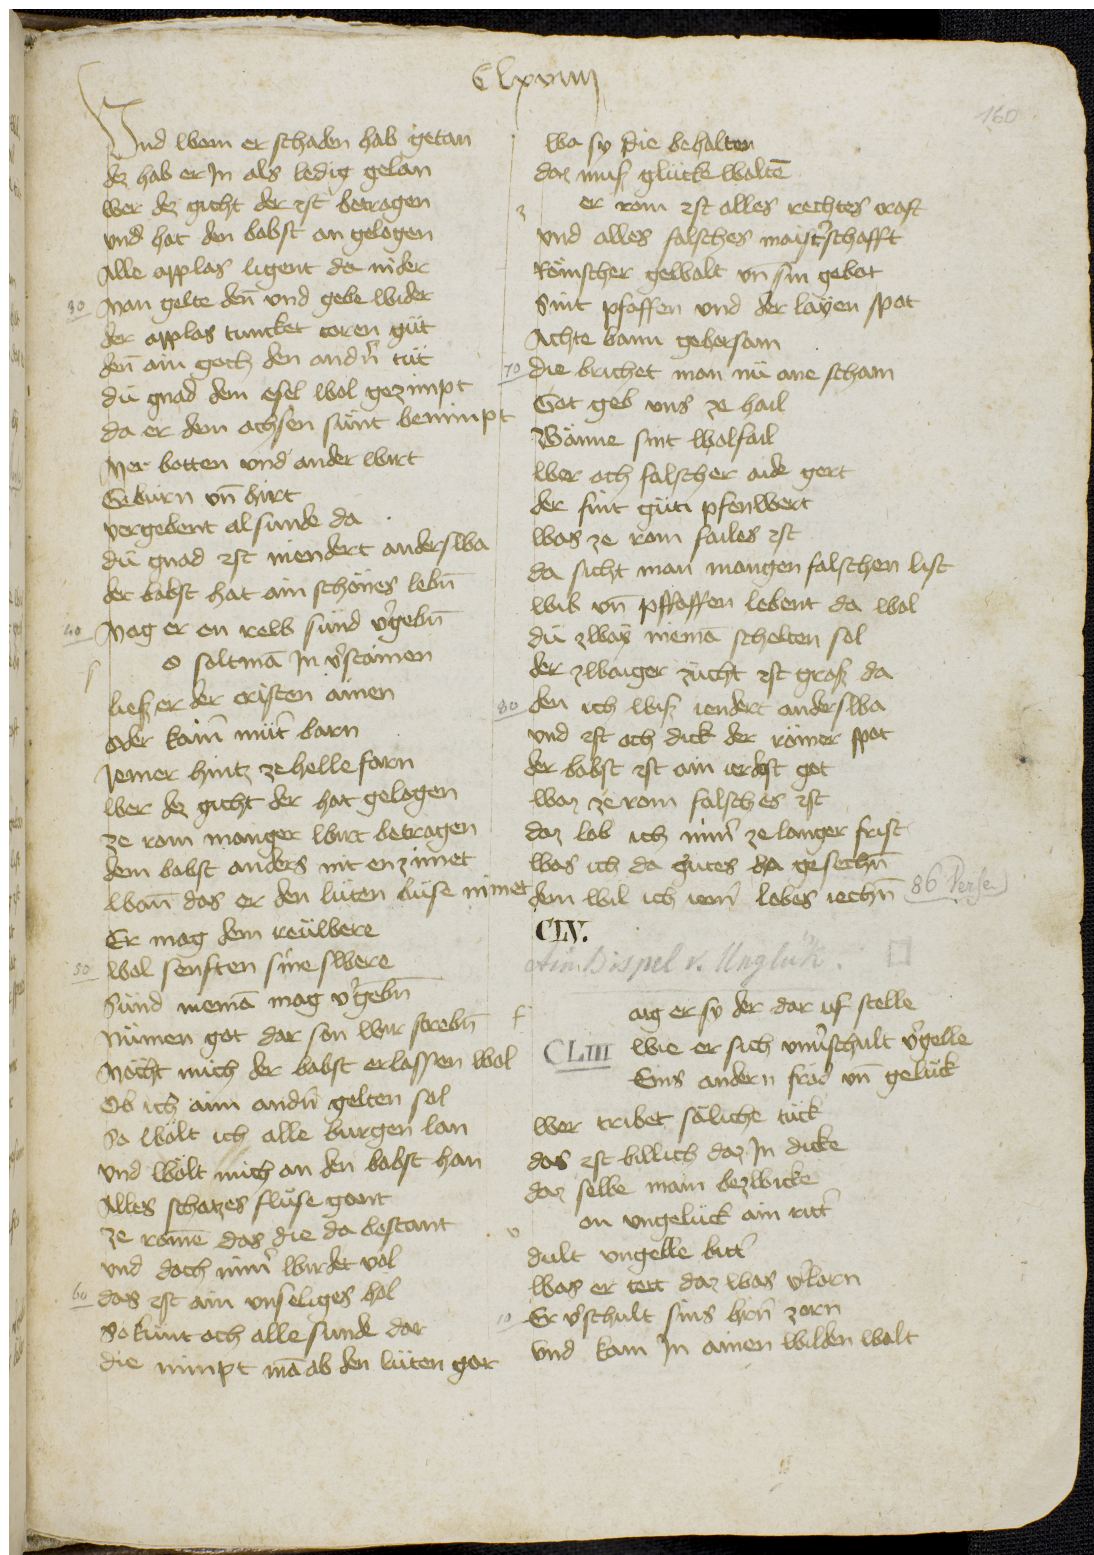 Clxviiij
160
Vnd wem er schaden hab getan
dez hab er In als ledig gelan
wer dez gicht der ist betrogen
vnd hat den babst an gelogen
Alle applas ligent da nider
30 Man gelte den̄ vnd gebe wider
der applas tuncket toren gůt
den̄ ain goch den andn̄ tůt
dú gnad dem esel wol gezimpt
da er dem ochsen súnt benimpt
Mer botten vnd ander wirt
Geburn vn̄ hirt
vergebent al sunde da
dú gnad ist niendert anderswa
der babst hat ain schönes lebn̄
40 Mag er on rew sünd v̾gebn̄
s o solt mā In v̾stainen
liess er der cristen ainen
oder kain̄ můt̾ barn
Jemer hintz ze helle farn
wer dez gicht der hat gelogen
ze rom maniger wirt betrogen
dem babst anders nit enzimet
wan̄ das er den lüten büse nimet
Er mag dem reüwere
50 wol senften sine swere
Sünd niemā mag v̾gebn̄
Nümen got dar son wir strebn̄
Möcht mich der babst erlassen wol
Ob ich aim andn̄ gelten sol
So wölt ich alle burgen lan
vnd wölt mich an den babst han
Alles schatzes flüse gant
ze romē das die da bestant
vnd doch nim̾ wirdet vol
60 das ist ain vnseliges hol
So kunt och alle sunde dar
die nimpt mā ab den lüten gar
wa sy die behalten
daz muss glücke waltē
z er rom ist alles rechtes craft
vnd alles falsches maist̾schafft
Römscher gewalt vn̄ sin gebot
Sint pfaffen vnd der layen spot
Achte bann gehorsam
70 die brichet man nü ane scham
Got geb vns ze hail
Bänne sint wolfail
wer och falscher aide gert
der sint gůti pfenwert
was ze rom failes ist
da sicht man mangen falschen list
wib vn̄ pffaffen lebent da wol
dü zway niemā schelten sol
der zwaiger zucht ist gross da
80 den ich wiss iendert anderswa
vnd ist och dick der römer spot
der babst ist ain irdest got
waz ze rom falsches ist
daz lob ich nim̾ ze langer frist
was ich da gutes da gesechn̄
dem wil ich iem̾ lobes iechn̄
86 Verse)
CLV.
Ain Bispel v. Unglük.
f aig er sy der dar uf stelle
CLIII wie er sich vnv̾schult v̾gelle
Eins andern fröd vn̄ gelück
wer tribet söliche tück
das ist billich daz In dicke
daz selbe main bezwicke
v on vngelück ain ritt̾
dult vngelle bitt̾
was er tett daz was v̾lorn
10 Er v̾schult sins hrn̄ zorn
vnd kam In ainen wilden walt